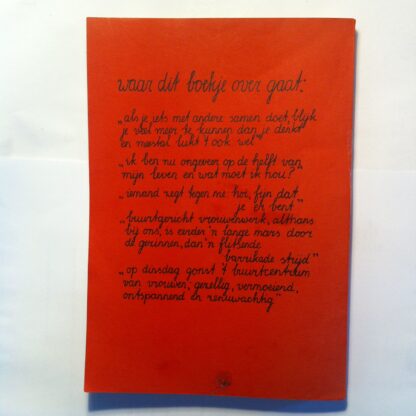 waar dit boekje over gaat:
„als je iets met andere samen doet, blijk
je veel meer te kunnen dan je denkt
en meestal lukt 't ook wel"
„ik ben nu ongeveer op de helft van
mijn leven en wat moet ik nou?"
„iemand zegt tegen me: hoi, fijn dat
je er bent"
„buurtgericht vrouwenwerk, althans
bij ons, is eerder 'n lange mars door
de gezinnen, dan 'n flitsende
barrikade strijd"
„op dinsdag gonst 't buurtcentrum
van vrouwen; gezellig, vermoeiend,
ontspannend en zenuwachtig"